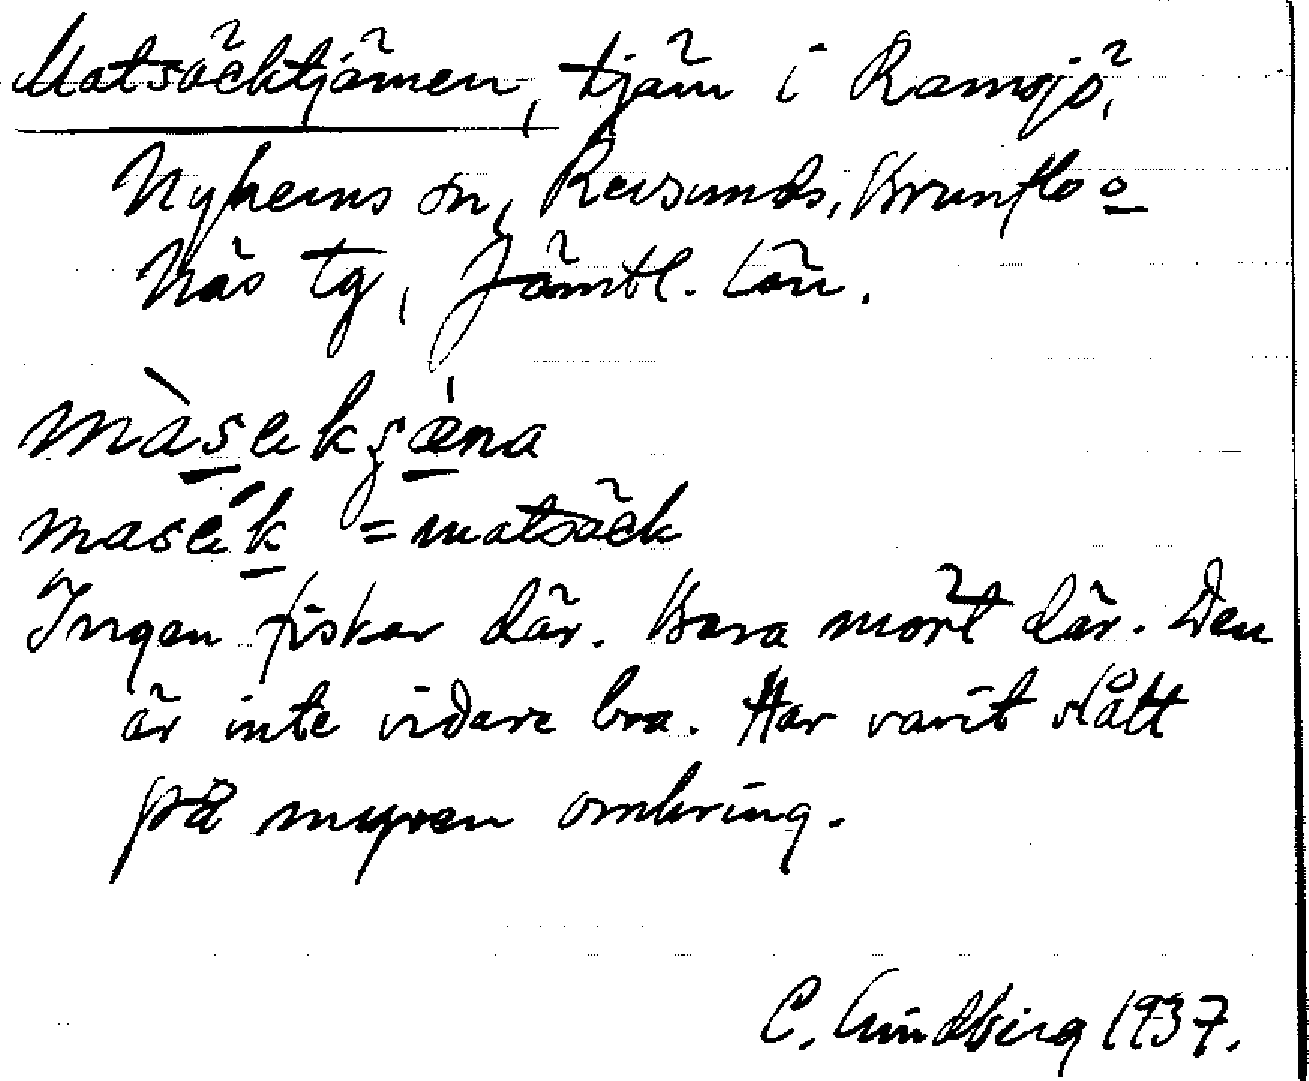 Matsäcktjärnen, tjärn i Ramsjö,
Nyhems sn, Revsunds, Brunflo o
Näs tg, Jämtl. län.
màsekʂæ̀na
masék = matsäck
Ingen fiskar där. Bara mört där. Den
är inte vidare bra. Har varit slått
på myren omkring.
C. Lundberg 1937.